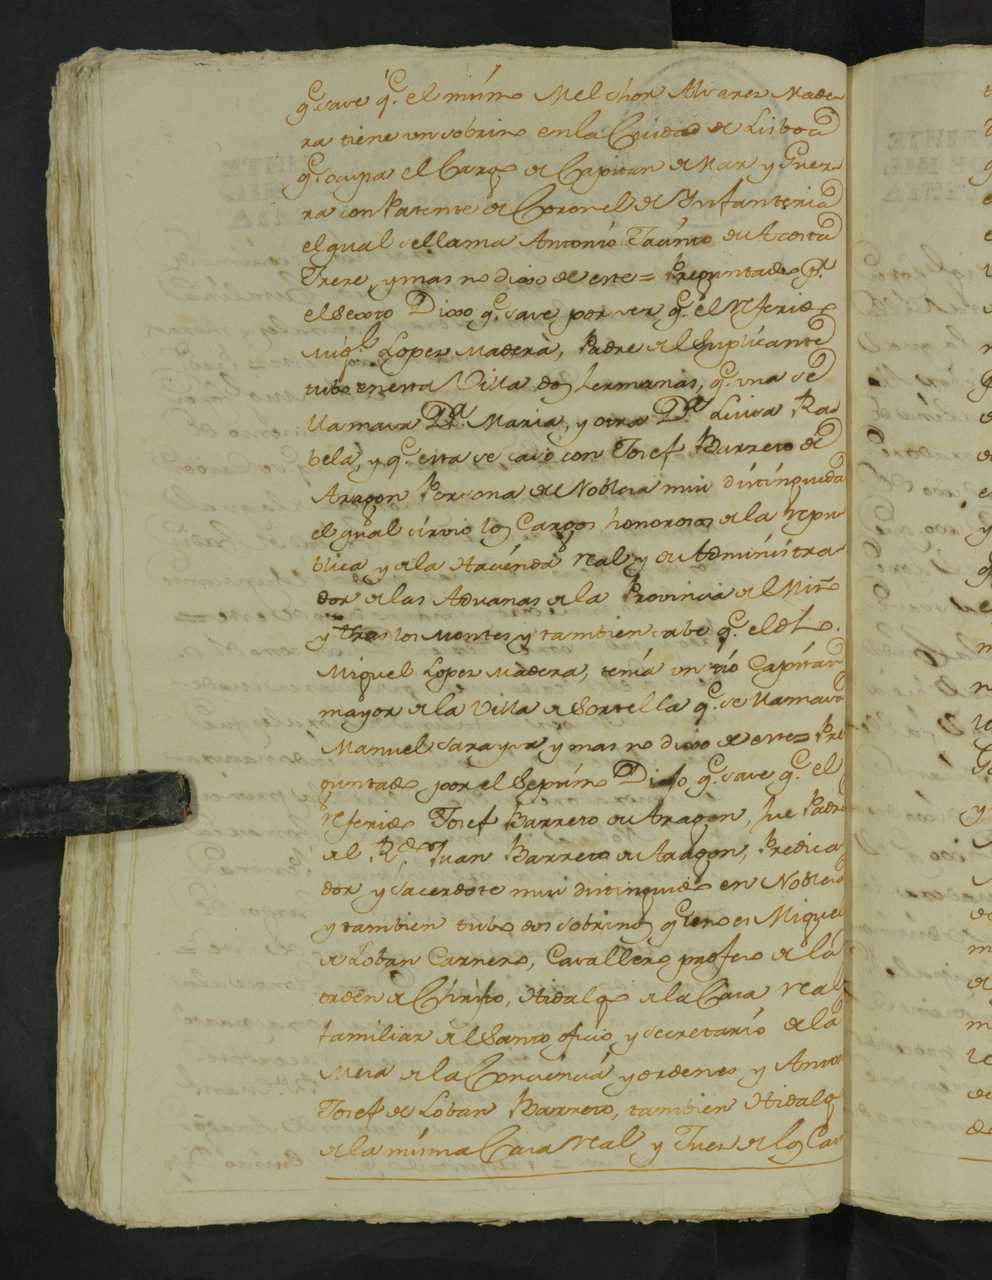 q.e save q.e el mismo Melchor Alvares Made-
ra tiene un sobrino en la Ciudad de Lisboa
q.e ocupa el Cargo de Capitan de Mar y Guer-
ra con Patente de Coronel de Ynfanteria
el qual se llama Antonio Jacinto de Acosta
Frere, y mas no dixo de este = Preguntado p.r
el sexto Dixo q.e save por ser q.e el referido
Mig.l Lopes Madera, Padre del Suplicante
tubo en esta Villa dos hermanas, q.e una se
llamava D.a Maria, y otra D.a Luisa Ra-
bela, y q.e esta se casò con Josef Barreto de
Aragon Persona de Nobleza mui distinguida
el qual sirvio los Cargos honorosos de la repu-
blica y de la Hacienda real y de Administra-
dor de las Aduanas de la Provincia del Miño
y tras los Montes y tambien sabe q.e el dho.
Miguel Lopes Madera, tenia un tio Capitan
mayor de la Villa de Sortella q.e se llamava
Manuel Sarayva y mas no dixo de este = Pre
guntado por el Septimo Dixo q.e save q.e el
referido Josef Barreto de Aragon, fue Padre
del R.do Juan Barreto de Aragon, Predica
dor y Sacerdote mui distinguido en Nobleza
y tambien tubo dos sobrinos q.e lo es Miguel
de Loban Carnero, Cavallero profeso de la
orden de Christo, Hidalgo de la Casa real
familiar del Santo oficio y secretario de la
Mesa de la Conciencia y ordenes y Anto.
Josef de Loban Barreto, tambien Hidalgo
de la misma Casa real y Juez de los Cav